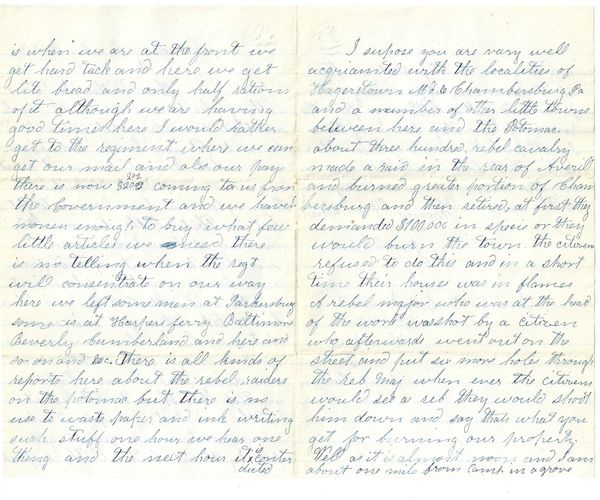 is when we are at the front we
get hard tack and here we get
lite bread and only half rations
of it although we are having
good times here I would rather
get to the regiment where we can
get our mail and also our pay
there is now $202 coming to us from
the Government and we haven't
money enough to buy what few
little articles we need there
is no telling when the regt
will consentrate on our way
here we left some men at Parkersburg
some is at Harpers ferry Baltimore
Beverly Cumberland and here and
so on and &c. There is all kinds of
reports here about the rebel raiders
on the potomac but there is no
use to waste paper and ink writing
such stuff one hour we hear one
thing and the next hour it is Conter
dicted
I supose you are vary well
acquianted with the localities of
Hagerstown Md & Chambersburg Pa
and a number of other little towns
between here and the Potomac
about three hundred rebel cavalry
made a raid in the rear of Averill
and burned greater portion of Cham
bersburg and then retired, at first they
demanded $100.000 in specie or they
would burn the town. the citizens
refused to do this and in a short
time their houses was in flames
A rebel major who was at the head
of the work was shot by a citizen
who afterwards went out on the
street and put six more holes through
the reb Maj when ever the citizens
would see a reb they would shoot
him down and say thats what you
get for burning our property.
Well as it is almost noon and I am
about one mile from camp in a grove